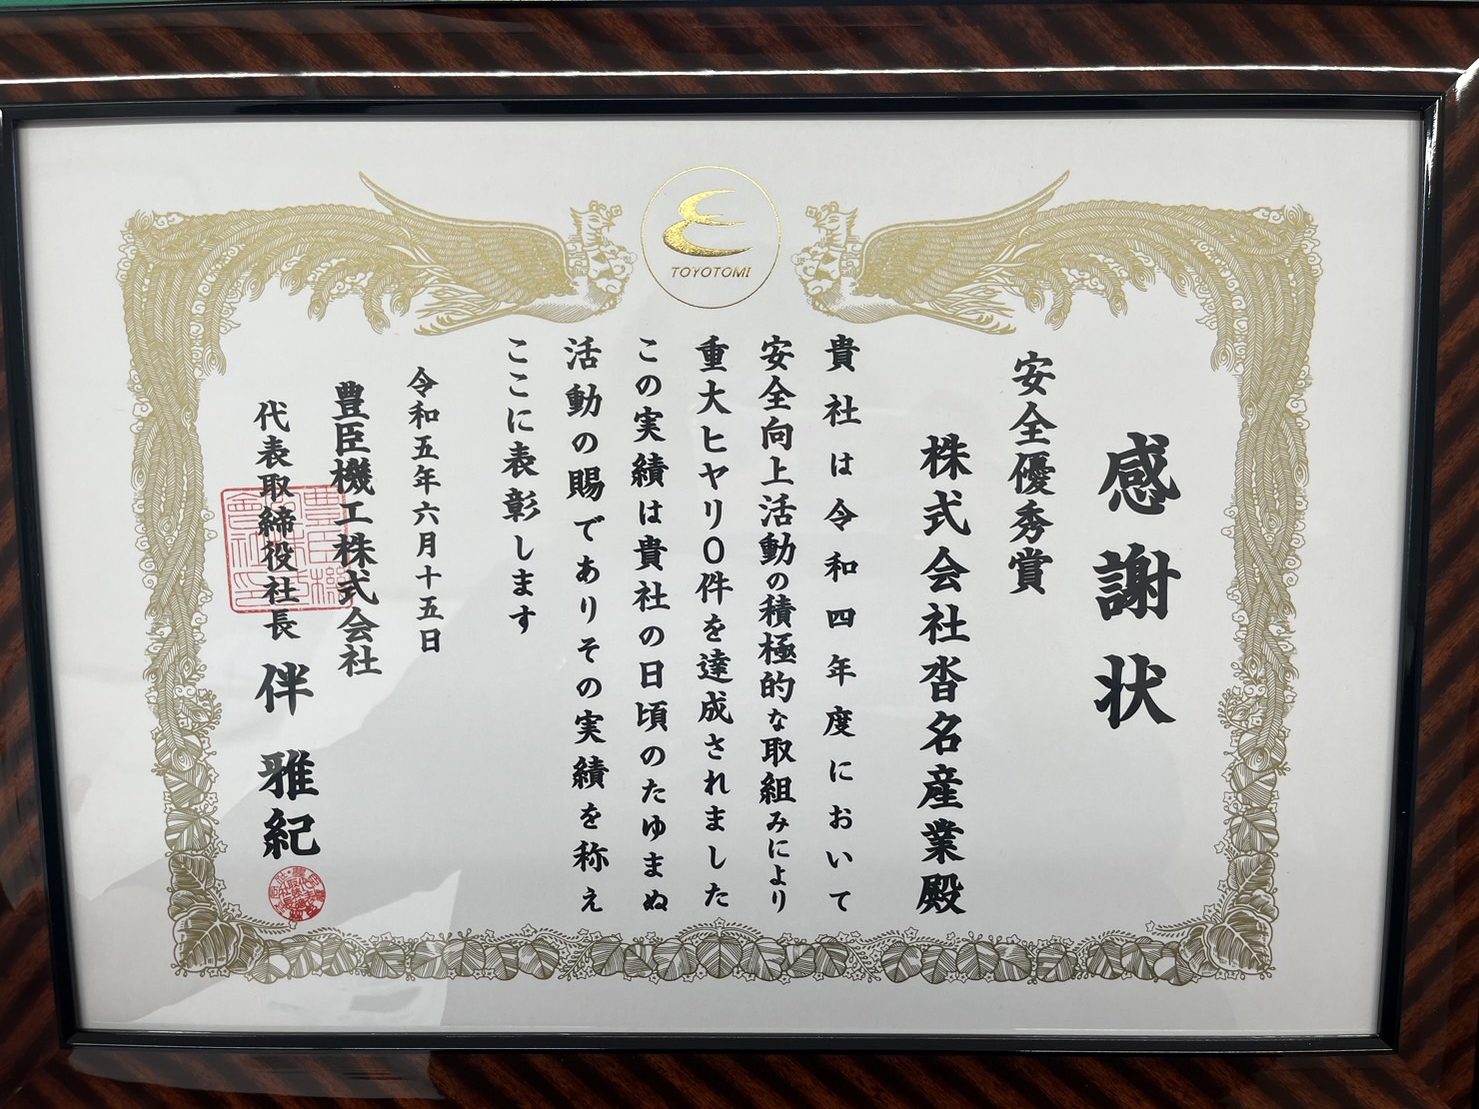 TOYOTOMI
感謝状
安全優秀賞
株式会社沓名産業殿
貴社は令和四年度において
安全向上活動の積極的な取組みにより
重大ヒヤリ0件を達成されました
この実績は貴社の日頃のたゆまぬ
活動の賜でありその実績を称え
ここに表彰します
令和五年六月十五日
豊臣機工株式会社
代表取締役社長 伴 雅紀